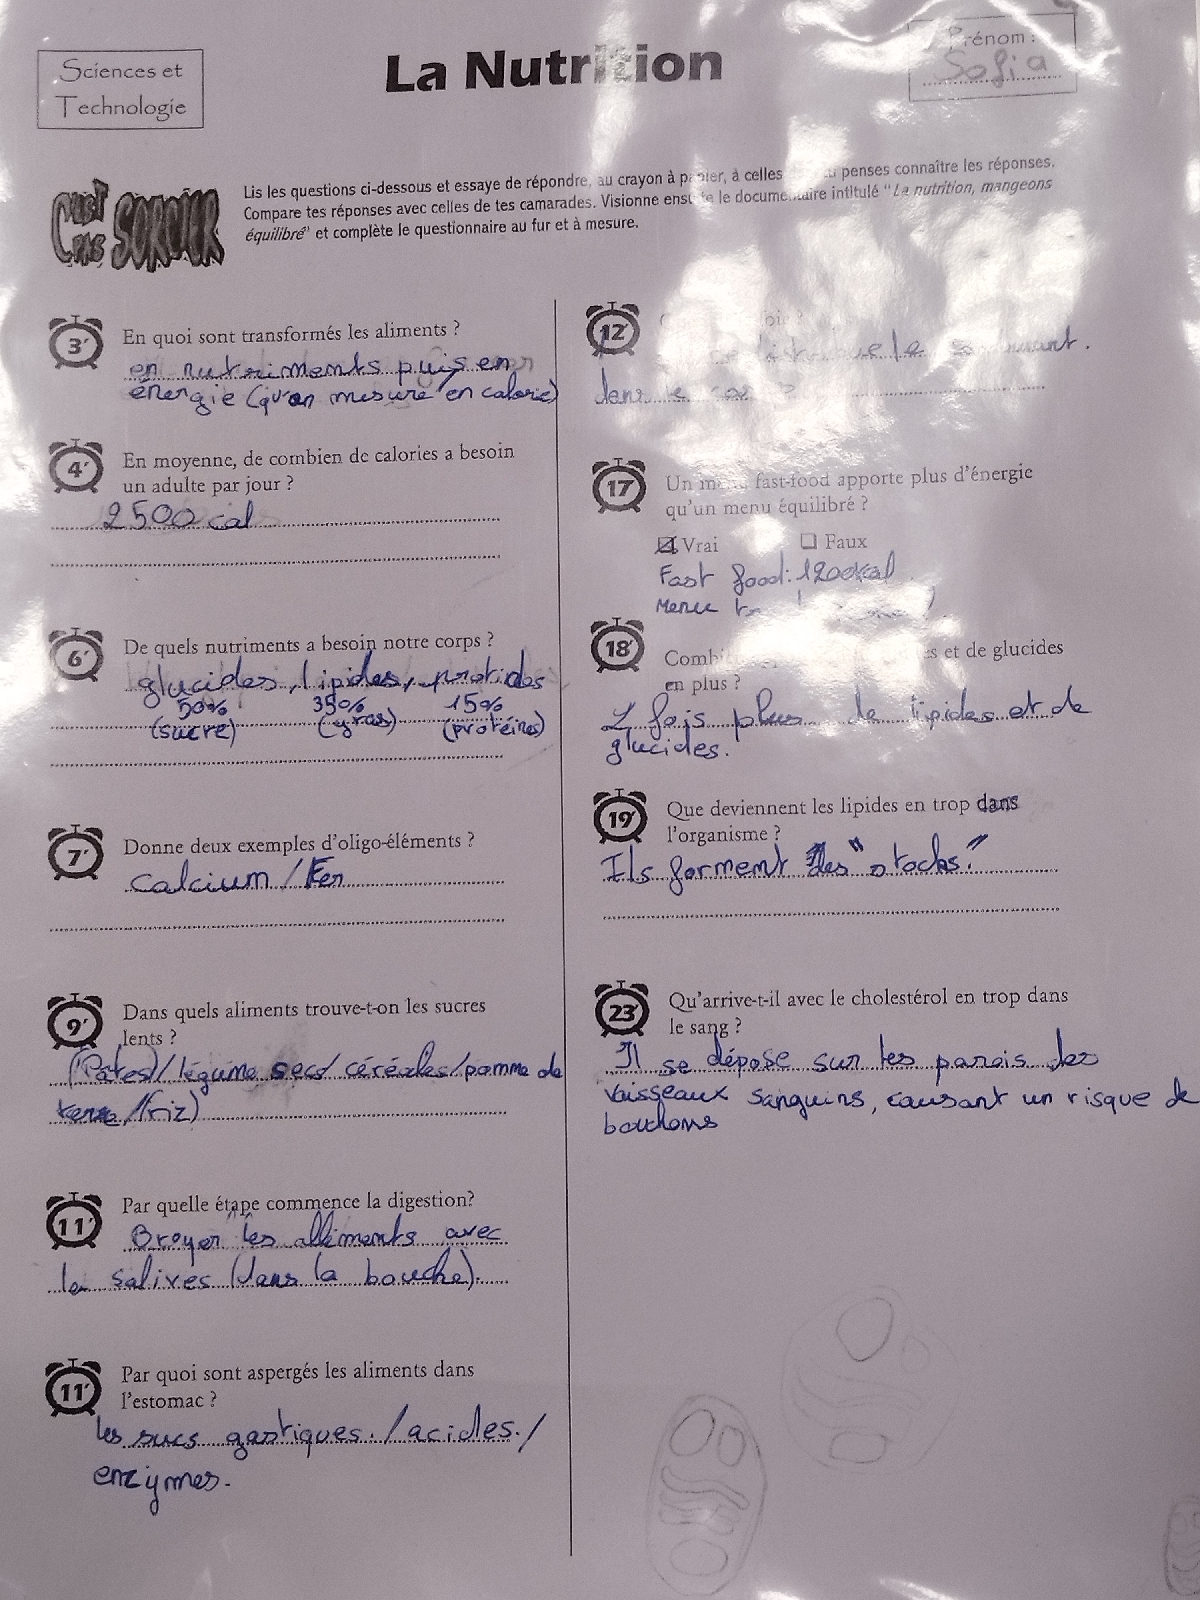 Sciences et
Technologie
La Nutrition
Prénom :
Sofia
C'EST PAS SORCIER
Lis les questions ci-dessous et essaye de répondre, au crayon à papier, à celles penses connaître les réponses.
Compare tes réponses avec celles de tes camarades. Visionne ensuite le documentaire intitulé "La nutrition, mangeons
équilibré" et complète le questionnaire au fur et à mesure.
3'
En quoi sont transformés les aliments ?
en nutriments puis en
énergie (qu'on mesure en calorie)
4'
En moyenne, de combien de calories a besoin
un adulte par jour ?
2500 cal
6'
De quels nutriments a besoin notre corps ?
glucides, lipides, protides
50% 35% 15%
(sucre) (gras) (protéines)
7'
Donne deux exemples d'oligo-éléments ?
calcium / Fer
9'
Dans quels aliments trouve-t-on les sucres
lents ?
(Pates)/légume secs/ céréales/pomme de
terre /riz)
11'
Par quelle étape commence la digestion?
Broyer les alliments avec
la salives (dans la bouche).
11'
Par quoi sont aspergés les aliments dans
l'estomac ?
les sucs gastiques./acides./
enzymes.
12'
dans le
17'
Un menu fast-food apporte plus d'énergie
qu'un menu équilibré ?
Vrai Faux
Fast food:
Menu
18'
et de glucides
en plus ?
2 fois plus de lipides et de
glucides.
19'
Que deviennent les lipides en trop dans
l'organisme ?
Ils forment des "stocks."
23'
Qu'arrive-t-il avec le cholestérol en trop dans
le sang ?
Il se dépose sur les parois des
vaisseaux sanguins, causant un risque de
bouchons